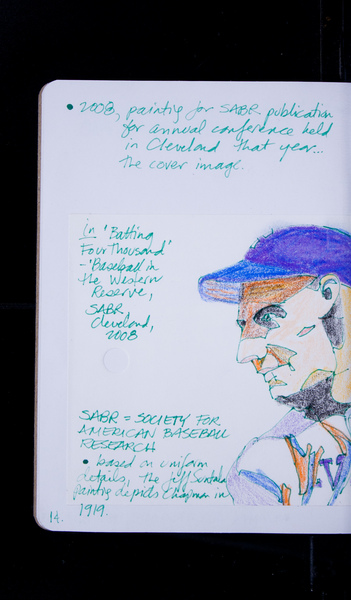 • 2008, painting for SABR publication
for annual conference held
in Cleveland that year...
the cover image.
in 'Batting
Four Thousand'
- 'Baseball in
the Western
Reserve,
SABR
Cleveland,
2008
SABR = SOCIETY FOR
AMERICAN BASEBALL
RESEARCH
• based on uniform
details, the Jeff Suntala
painting depicts Chapman in
1919.
14.